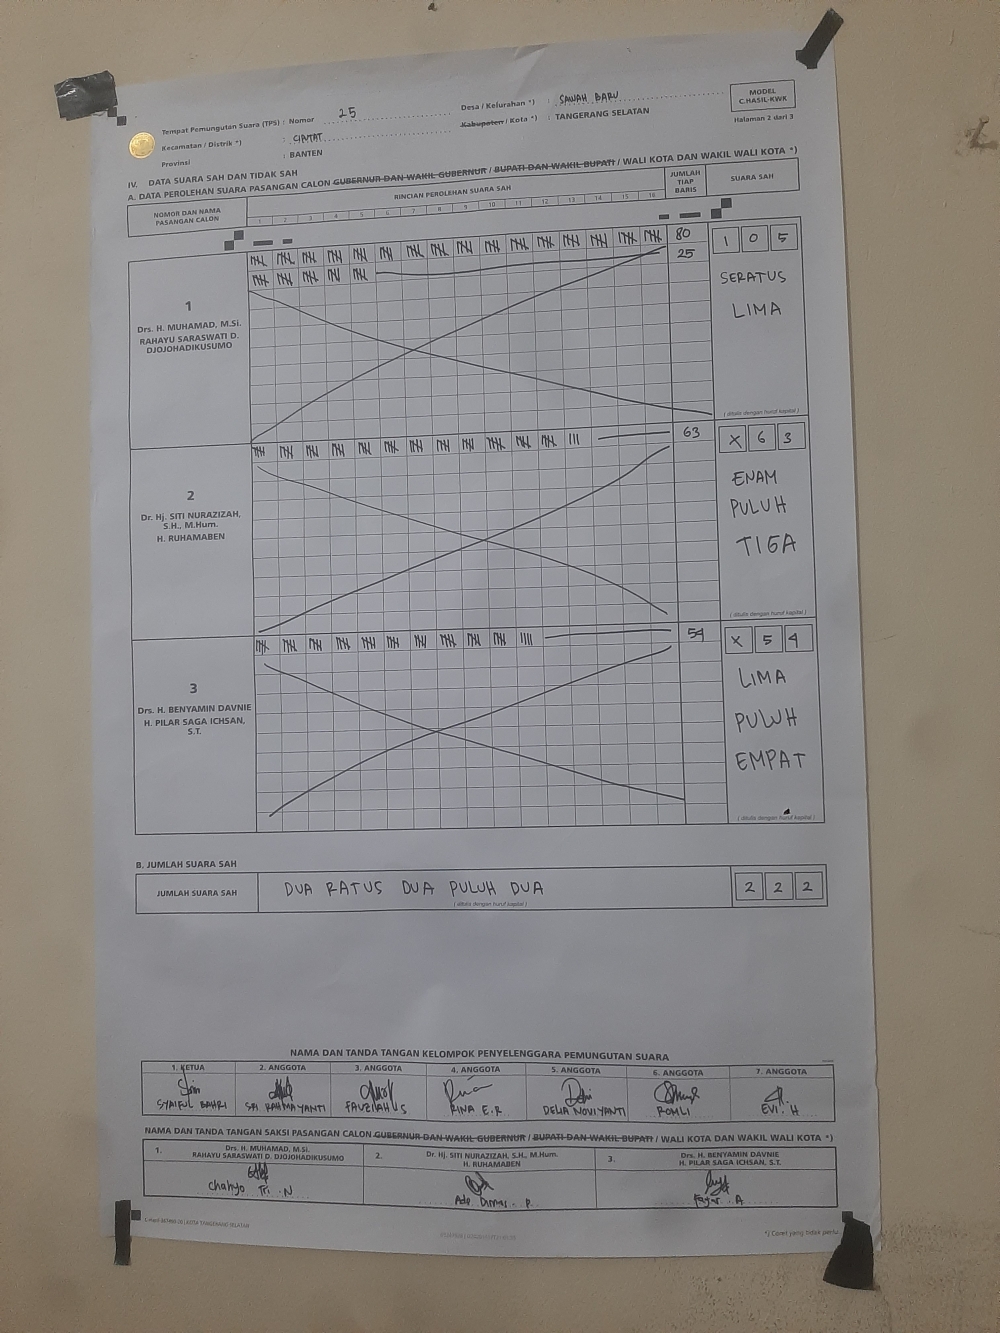 MODEL
C.HASIL-KWK
Halaman 2 dari 3
Tempat Pemungutan Suara (TPS) : Nomor 25 Desa / Kelurahan *) : SAWAH BARU
Kecamatan / Distrik *) : CIPUTAT Kabupaten / Kota *) : TANGERANG SELATAN
Provinsi : BANTEN
IV. DATA SUARA SAH DAN TIDAK SAH
A. DATA PEROLEHAN SUARA PASANGAN CALON GUBERNUR DAN WAKIL GUBERNUR / BUPATI DAN WAKIL BUPATI / WALI KOTA DAN WAKIL WALI KOTA *)
NOMOR DAN NAMA
PASANGAN CALON
RINCIAN PEROLEHAN SUARA SAH
1 2 3 4 5 6 7 8 9 10 11 12 13 14 15 16
JUMLAH
TIAP
BARIS
SUARA SAH
1
Drs. H. MUHAMAD, M.Si.
RAHAYU SARASWATI D.
DJOJOHADIKUSUMO
80
25
1 0 5
SERATUS
LIMA
( ditulis dengan huruf kapital )
2
Dr. Hj. SITI NURAZIZAH,
S.H., M.Hum.
H. RUHAMABEN
63
X 6 3
ENAM
PULUH
TIGA
( ditulis dengan huruf kapital )
3
Drs. H. BENYAMIN DAVNIE
H. PILAR SAGA ICHSAN,
S.T.
54
X 5 4
LIMA
PULUH
EMPAT
( ditulis dengan huruf kapital )
B. JUMLAH SUARA SAH
JUMLAH SUARA SAH DUA RATUS DUA PULUH DUA 2 2 2
( ditulis dengan huruf kapital )
NAMA DAN TANDA TANGAN KELOMPOK PENYELENGGARA PEMUNGUTAN SUARA
1. KETUA 2. ANGGOTA 3. ANGGOTA 4. ANGGOTA 5. ANGGOTA 6. ANGGOTA 7. ANGGOTA
SYAIFUL BAHRI SRI RAHMAYANTI FAUZIAH S RINA E.R DELIA NOVIYANTI ROMLI EVI. H
NAMA DAN TANDA TANGAN SAKSI PASANGAN CALON GUBERNUR DAN WAKIL GUBERNUR / BUPATI DAN WAKIL BUPATI / WALI KOTA DAN WAKIL WALI KOTA *)
1. Drs. H. MUHAMAD, M.Si.
RAHAYU SARASWATI D. DJOJOHADIKUSUMO
2. Dr. Hj. SITI NURAZIZAH, S.H., M.Hum.
H. RUHAMABEN
3. Drs. H. BENYAMIN DAVNIE
H. PILAR SAGA ICHSAN, S.T.
Chahyo Tri . N Ade Dimas . P. Fajar . A
*) Coret yang tidak perlu